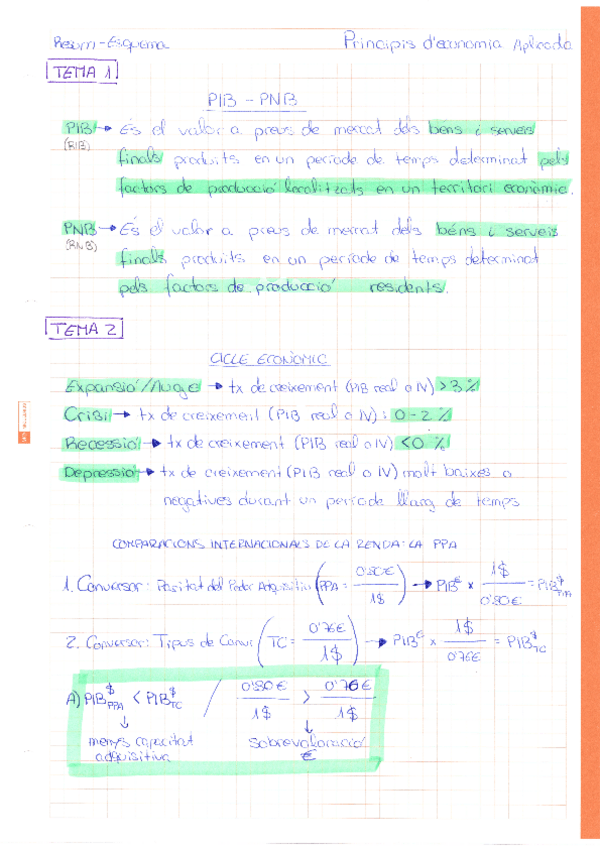 Resum-Esquema Principis d'economia Aplicada
TEMA 1
PIB - PNB
PIB → És el valor a preus de mercat dels béns i serveis
(RIB)
finals produïts en un període de temps determinat pels
factors de producció localitzats en un territori econòmic.
PNB → És el valor a preus de mercat dels béns i serveis
(RNB)
finals produïts en un període de temps determinat
pels factors de producció residents.
TEMA 2
CICLE ECONÒMIC
Expansió/Auge → tx de creixement (PIB real o IV) >3%
Crisi → tx de creixement (PIB real o IV): 0-2%
Recessió → tx de creixement (PIB real o IV) <0%
Depressió → tx de creixement (PIB real o IV) molt baixes o
negatives durant un període llarg de temps
COMPARACIONS INTERNACIONALS DE LA RENDA: LA PPA
1. Conversor: Paritat del Poder Adquisitiu (PPA = 0'80€ / 1$) → PIB€ × 1$ / 0'80€ = PIB$ PPA
2. Conversor: Tipus de Canvi (TC = 0'76€ / 1$) → PIB€ × 1$ / 0'76€ = PIB$ TC
A) PIB$ PPA < PIB$ TC / 0'80€ / 1$ > 0'76€ / 1$
↓ ↓
menys capacitat sobrevaloració
adquisitiva €